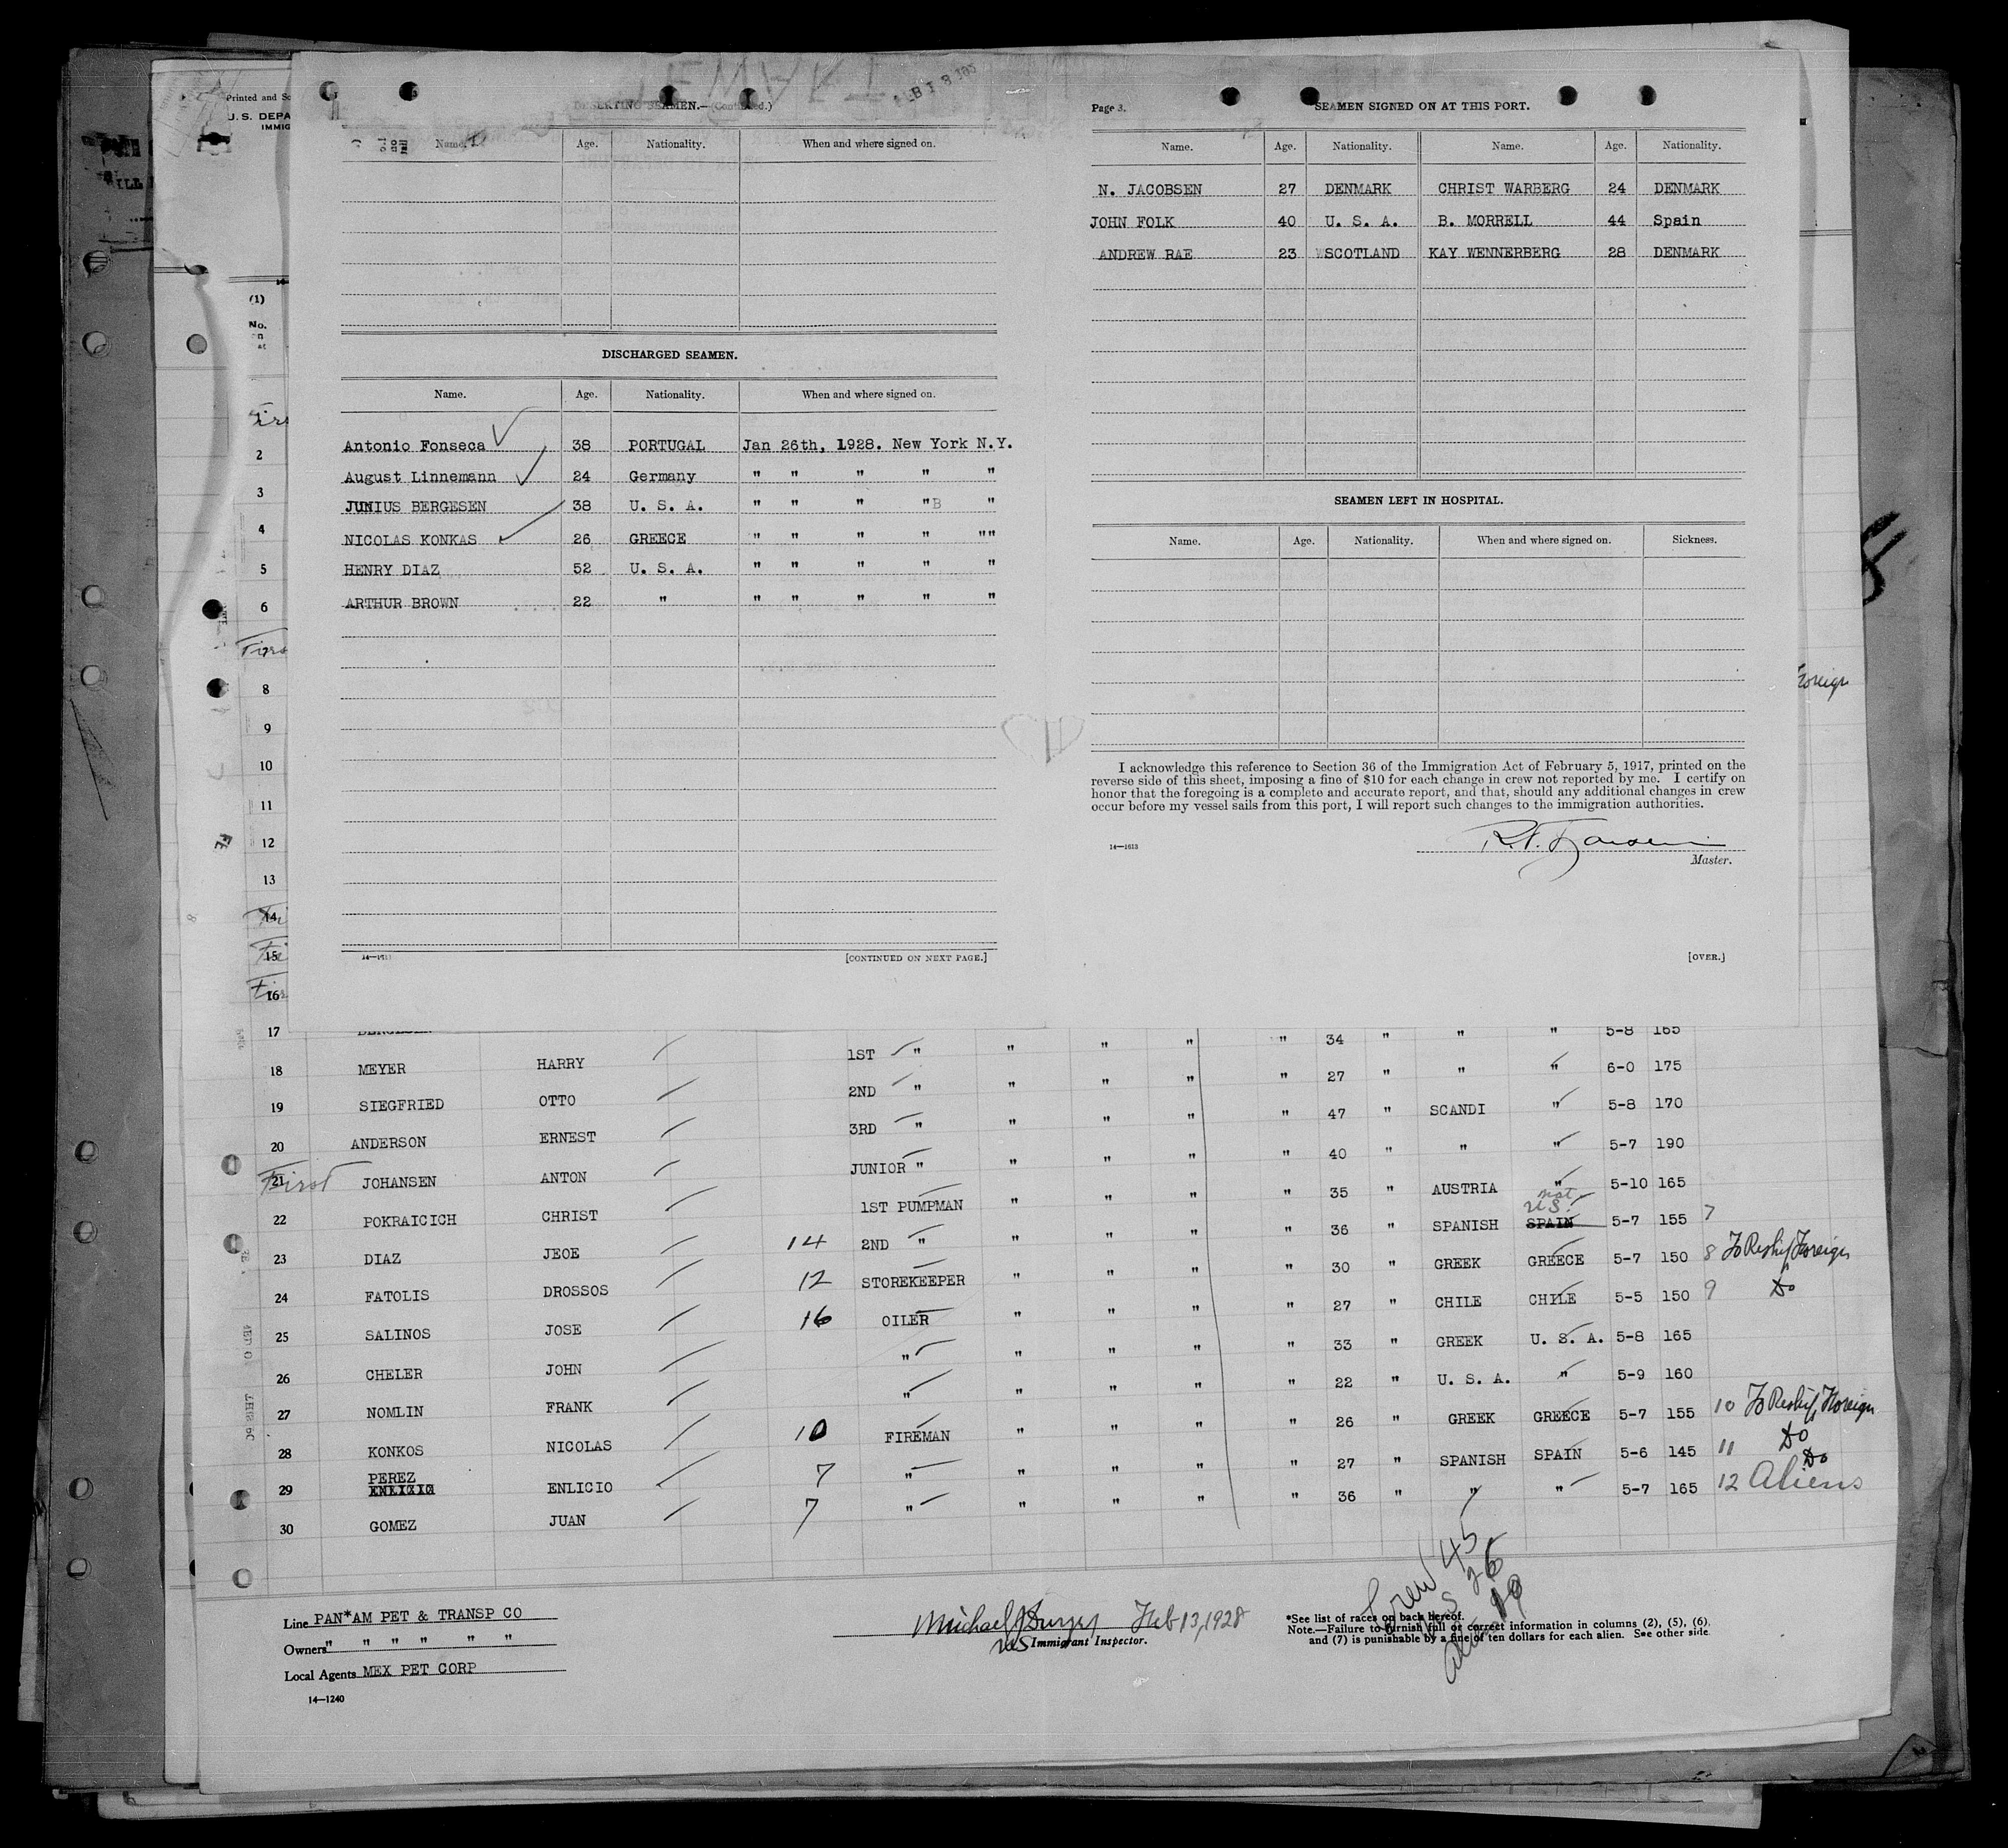 Printed and
U. S. DEPA
IMMIG
(1)
No.
DESERTING SEAMEN.—(Continued.)
Name. Age. Nationality. When and where signed on.
DISCHARGED SEAMEN.
Name. Age. Nationality. When and where signed on.
Antonio Fonseca 38 PORTUGAL Jan 26th, 1928. New York N.Y.
August Linnemann 24 Germany " " " " "
JUNIUS BERGESEN 38 U. S. A. " " " "B "
NICOLAS KONKAS 26 GREECE " " " " ""
HENRY DIAZ 52 U. S. A. " " " " "
ARTHUR BROWN 22 " " " " " "
[CONTINUED ON NEXT PAGE.]
Page 3. SEAMEN SIGNED ON AT THIS PORT.
Name. Age. Nationality. Name. Age. Nationality.
N. JACOBSEN 27 DENMARK CHRIST WARBERG 24 DENMARK
JOHN FOLK 40 U. S. A. B. MORRELL 44 Spain
ANDREW RAE 23 SCOTLAND KAY WENNERBERG 28 DENMARK
SEAMEN LEFT IN HOSPITAL.
Name. Age. Nationality. When and where signed on. Sickness.
I acknowledge this reference to Section 36 of the Immigration Act of February 5, 1917, printed on the
reverse side of this sheet, imposing a fine of $10 for each change in crew not reported by me. I certify on
honor that the foregoing is a complete and accurate report, and that, should any additional changes in crew
occur before my vessel sails from this port, I will report such changes to the immigration authorities.
14—1613
Master.
[OVER.]
Foreign
2
3
4
5
6
8
9
10
11
12
13
14
15
16
17 BERGESEN 34 " " " 5-8 165
18 MEYER HARRY 1ST " " " " " 27 " " " 6-0 175
19 SIEGFRIED OTTO 2ND " " " " " 47 " SCANDI " 5-8 170
20 ANDERSON ERNEST 3RD " " " " " 40 " " " 5-7 190
21 First JOHANSEN ANTON JUNIOR " " " " " 35 " AUSTRIA " 5-10 165
22 POKRAICICH CHRIST 1ST PUMPMAN " " " " 36 " SPANISH not U.S. SPAIN 5-7 155 7
23 DIAZ JEOE 14 2ND " " " " " 30 " GREEK GREECE 5-7 150 8 To Reship Foreign
24 FATOLIS DROSSOS 12 STOREKEEPER " " " " 27 " CHILE CHILE 5-5 150 9 Do
25 SALINOS JOSE 16 OILER " " " " 33 " GREEK U. S. A. 5-8 165
26 CHELER JOHN " " " " " 22 " U. S. A. " 5-9 160
27 NOMLIN FRANK " " " " " 26 " GREEK GREECE 5-7 155 10 To Reship Foreign
28 KONKOS NICOLAS 10 FIREMAN " " " " 27 " SPANISH SPAIN 5-6 145 11 Do
29 PEREZ ENLICIO 7 " " " " " 36 " " " 5-7 165 12 Aliens Do
30 GOMEZ JUAN 7 " " " "
Crew 45
US 26
Aliens 19
Line PAN*AM PET & TRANSP CO
Owners " " " " " "
Local Agents MEX PET CORP
14—1240
Feb 13, 1928
US Immigrant Inspector.
*See list of races on back hereof.
Note.—Failure to furnish full or correct information in columns (2), (5), (6),
and (7) is punishable by a fine of ten dollars for each alien. See other side